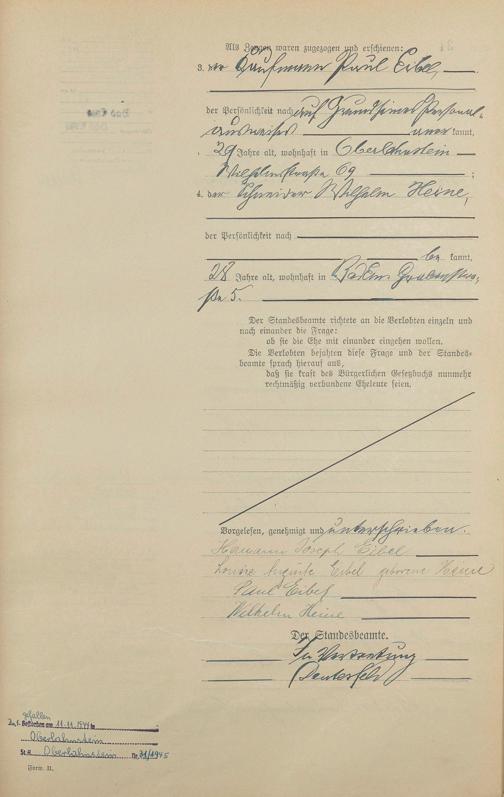 Als Zeugen waren zugezogen und erschienen:
3. der Kaufmann Paul Eibel,
der Persönlichkeit nach auf Grund seines Personal-
ausweises anerkannt,
29 Jahre alt, wohnhaft in Oberlahnstein
Wilhelmstraße 69 ;
4. der Schneider Wilhelm Heine,
der Persönlichkeit nach
bekannt,
28 Jahre alt, wohnhaft in
ße 5.
Der Standesbeamte richtete an die Verlobten einzeln und
nach einander die Frage:
ob sie die Ehe mit einander eingehen wollen.
Die Verlobten bejahten diese Frage und der Standes-
beamte sprach hierauf aus,
daß sie kraft des Bürgerlichen Gesetzbuchs nunmehr
rechtmäßig verbundene Eheleute seien.
Vorgelesen, genehmigt und unterschrieben.
Hermann Joseph Eibel
Louise Auguste Eibel geborene Heine
Paul Eibel
Wilhelm Heine
Der Standesbeamte.
In Vertretung
gefallen
am 11.11.1944 in
Oberlahnstein
St.A. Oberlahnstein Nr. 31/1945
Form. II.